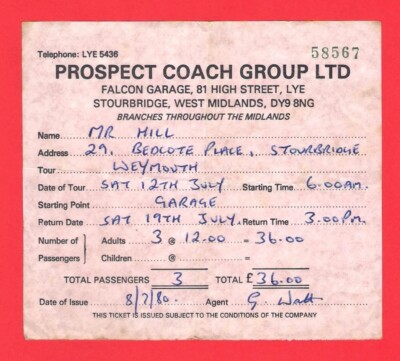 Telephone: LYE 5436 58567
PROSPECT COACH GROUP LTD
FALCON GARAGE, 81 HIGH STREET, LYE
STOURBRIDGE, WEST MIDLANDS, DY9 8NG
BRANCHES THROUGHOUT THE MIDLANDS
Name MR HILL
Address 29, BEDCOTE PLACE, STOURBRIDGE
Tour WEYMOUTH
Date of Tour SAT 12TH JULY Starting Time 6.00am.
Starting Point GARAGE
Return Date SAT 19TH JULY. Return Time 3.00pm.
Number of Adults 3 @ 12.00 = 36.00
Passengers Children @ =
TOTAL PASSENGERS 3 TOTAL £ 36.00
Date of Issue 8/7/80. Agent G. Watt
THIS TICKET IS ISSUED SUBJECT TO THE CONDITIONS OF THE COMPANY